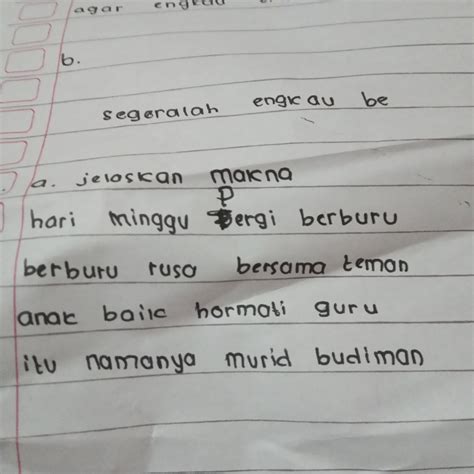 agar engkau
b.
segeralah engkau be
a. jelaskan makna
hari minggu Pergi berburu
berburu rusa bersama teman
anak baik hormati guru
itu namanya murid budiman